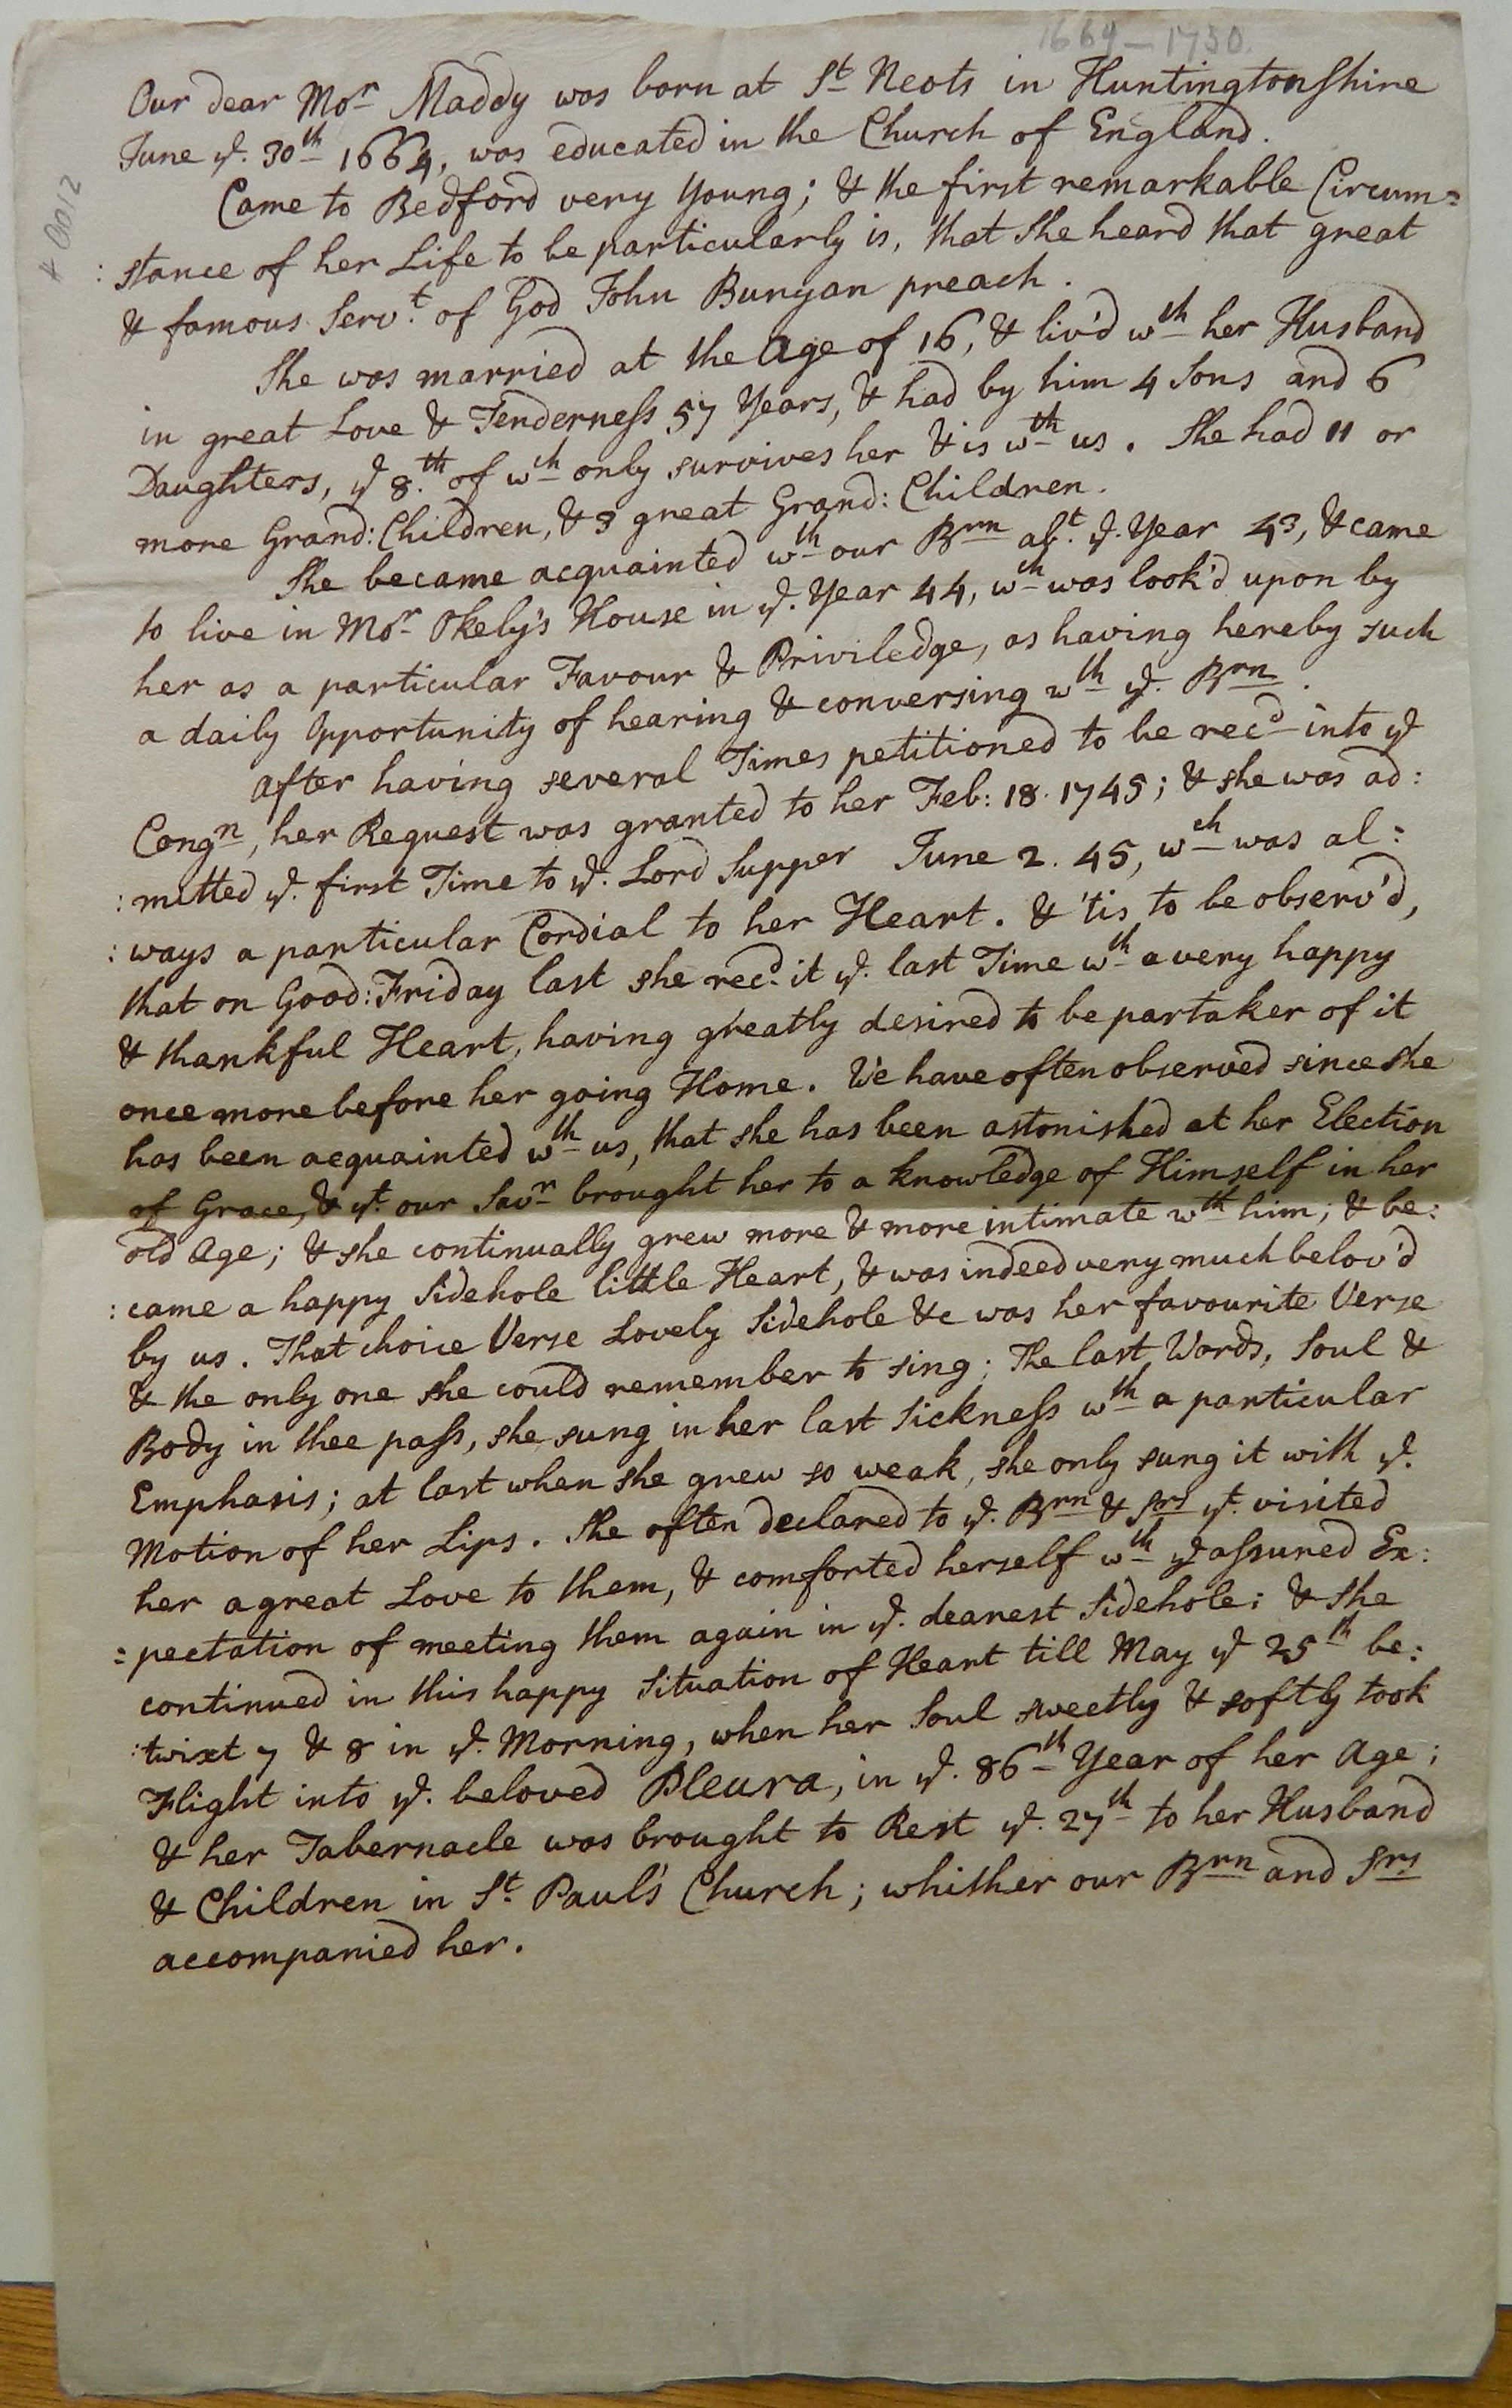 1664–1750.
A 0012
Our dear Mor Maddy was born at St Neots in Huntingtonshire
June ye. 30th 1664, was educated in the Church of England.
Came to Bedford very Young; & the first remarkable Circum=
: stance of her Life to be particularly is, that she heard that great
& famous Servt. of God John Bunyan preach.
She was married at the Age of 16, & liv'd wth her Husband
in great Love & Tenderness 57 Years, & had by him 4 Sons and 6
Daughters, ye 8th. of wch only survives her & is wth us. She had 11 or
more Grand: Children, & 3 great Grand: Children.
She became acquainted wth our Brn abt. ye. Year 43, & came
to live in Mor Okely's House in ye. Year 44, wch was look'd upon by
her as a particular Favour & Priviledge, as having hereby such
a daily Opportunity of hearing & conversing wth ye. Brn.
After having several Times petitioned to be recd into ye
Congn, her Request was granted to her Feb: 18. 1745; & she was ad:
: mitted ye. first Time to ye. Lord Supper June 2. 45, wch was al:
: ways a particular Cordial to her Heart. & 'tis to be observ'd,
that on Good: Friday last she recd. it ye. last Time wth a very happy
& thankful Heart, having greatly desired to be partaker of it
once more before her going Home. We have often observed since she
has been acquainted wth us, that she has been astonished at her Election
of Grace, & yt. our Savr brought her to a knowledge of Himself in her
old Age; & she continually grew more & more intimate wth him; & be:
: came a happy Sidehole little Heart, & was indeed very much belov'd
by us. That choice Verse Lovely Sidehole &c was her favourite Verse
& the only one she could remember to sing; The last Words, Soul &
Body in thee pass, she sung in her last Sickness wth a particular
Emphasis; at last when she grew so weak, she only sung it with ye.
Motion of her Lips. She often declared to ye. Brn & Srs yt. visited
her a great Love to them, & comforted herself wth ye assured Ex:
= pectation of meeting them again in ye. dearest Sidehole; & she
continued in this happy Situation of Heart till May ye 25th be:
: twixt 7 & 8 in ye. Morning, when her Soul sweetly & softly took
Flight into ye. beloved Pleura, in ye. 86th Year of her Age;
& her Tabernacle was brought to Rest ye. 27th to her Husband
& Children in St. Paul's Church; whither our Brn and Srs
accompanied her.